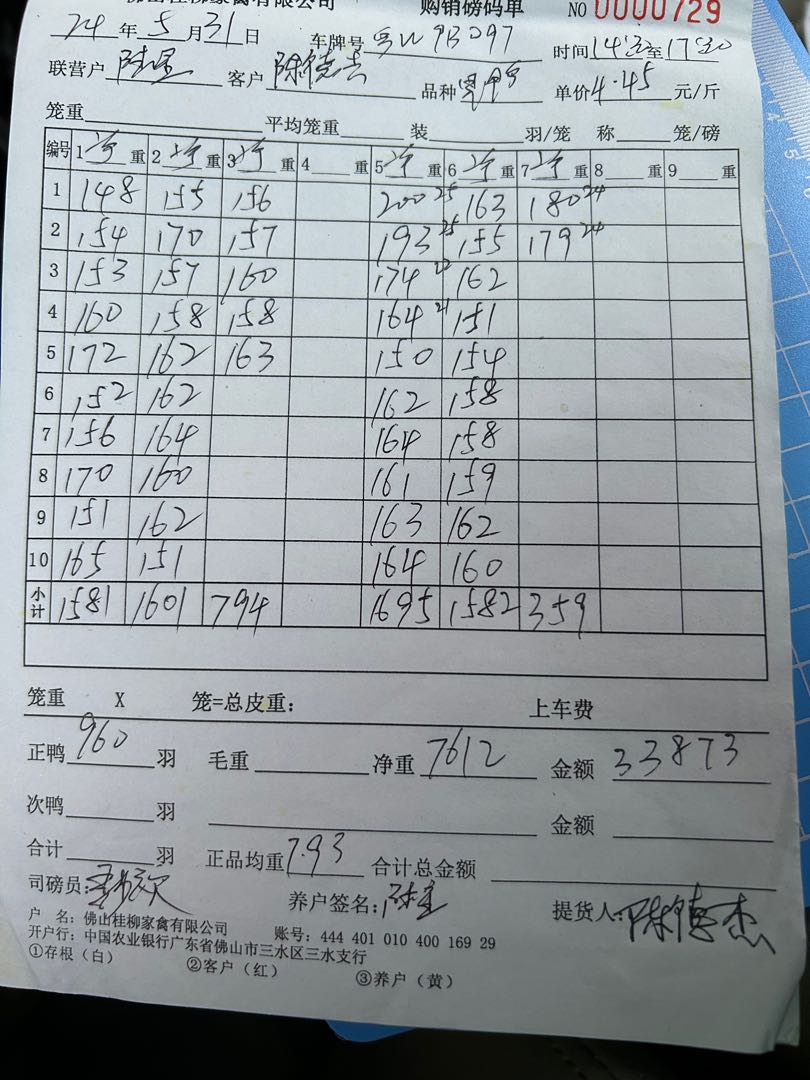 佛山桂柳家禽有限公司 购销磅码单 NO 0000729
24 年 5 月 31 日 车牌号 93097 时间 14:30 至 17:30
联营户 陆星 客户 陈德杰 品种 单价 4.45 元/斤
笼重 平均笼重 装 羽/笼 称 笼/磅
编号 1 净 重 2 净 重 3 净 重 4 重 5 净 重 6 净 重 7 净 重 8 重 9 重
1 148 155 156 200 25 163 180 24
2 154 170 157 193 25 155 179 24
3 153 157 160 174 22 162
4 160 158 158 164 21 151
5 172 162 163 150 154
6 152 162 162 158
7 156 164 164 158
8 170 160 161 159
9 151 162 163 162
10 165 151 164 160
小计 1581 1601 794 1695 1582 359
笼重 X 笼=总皮重: 上车费
正鸭 960 羽 毛重 净重 7612 金额 33873
次鸭 羽 金额
合计 羽 正品均重 7.93 合计总金额
司磅员: 养户签名: 陆星 提货人: 陈德杰
户 名: 佛山桂柳家禽有限公司 账号: 444 401 010 400 169 29
开户行: 中国农业银行广东省佛山市三水区三水支行
①存根(白) ②客户(红) ③养户(黄)